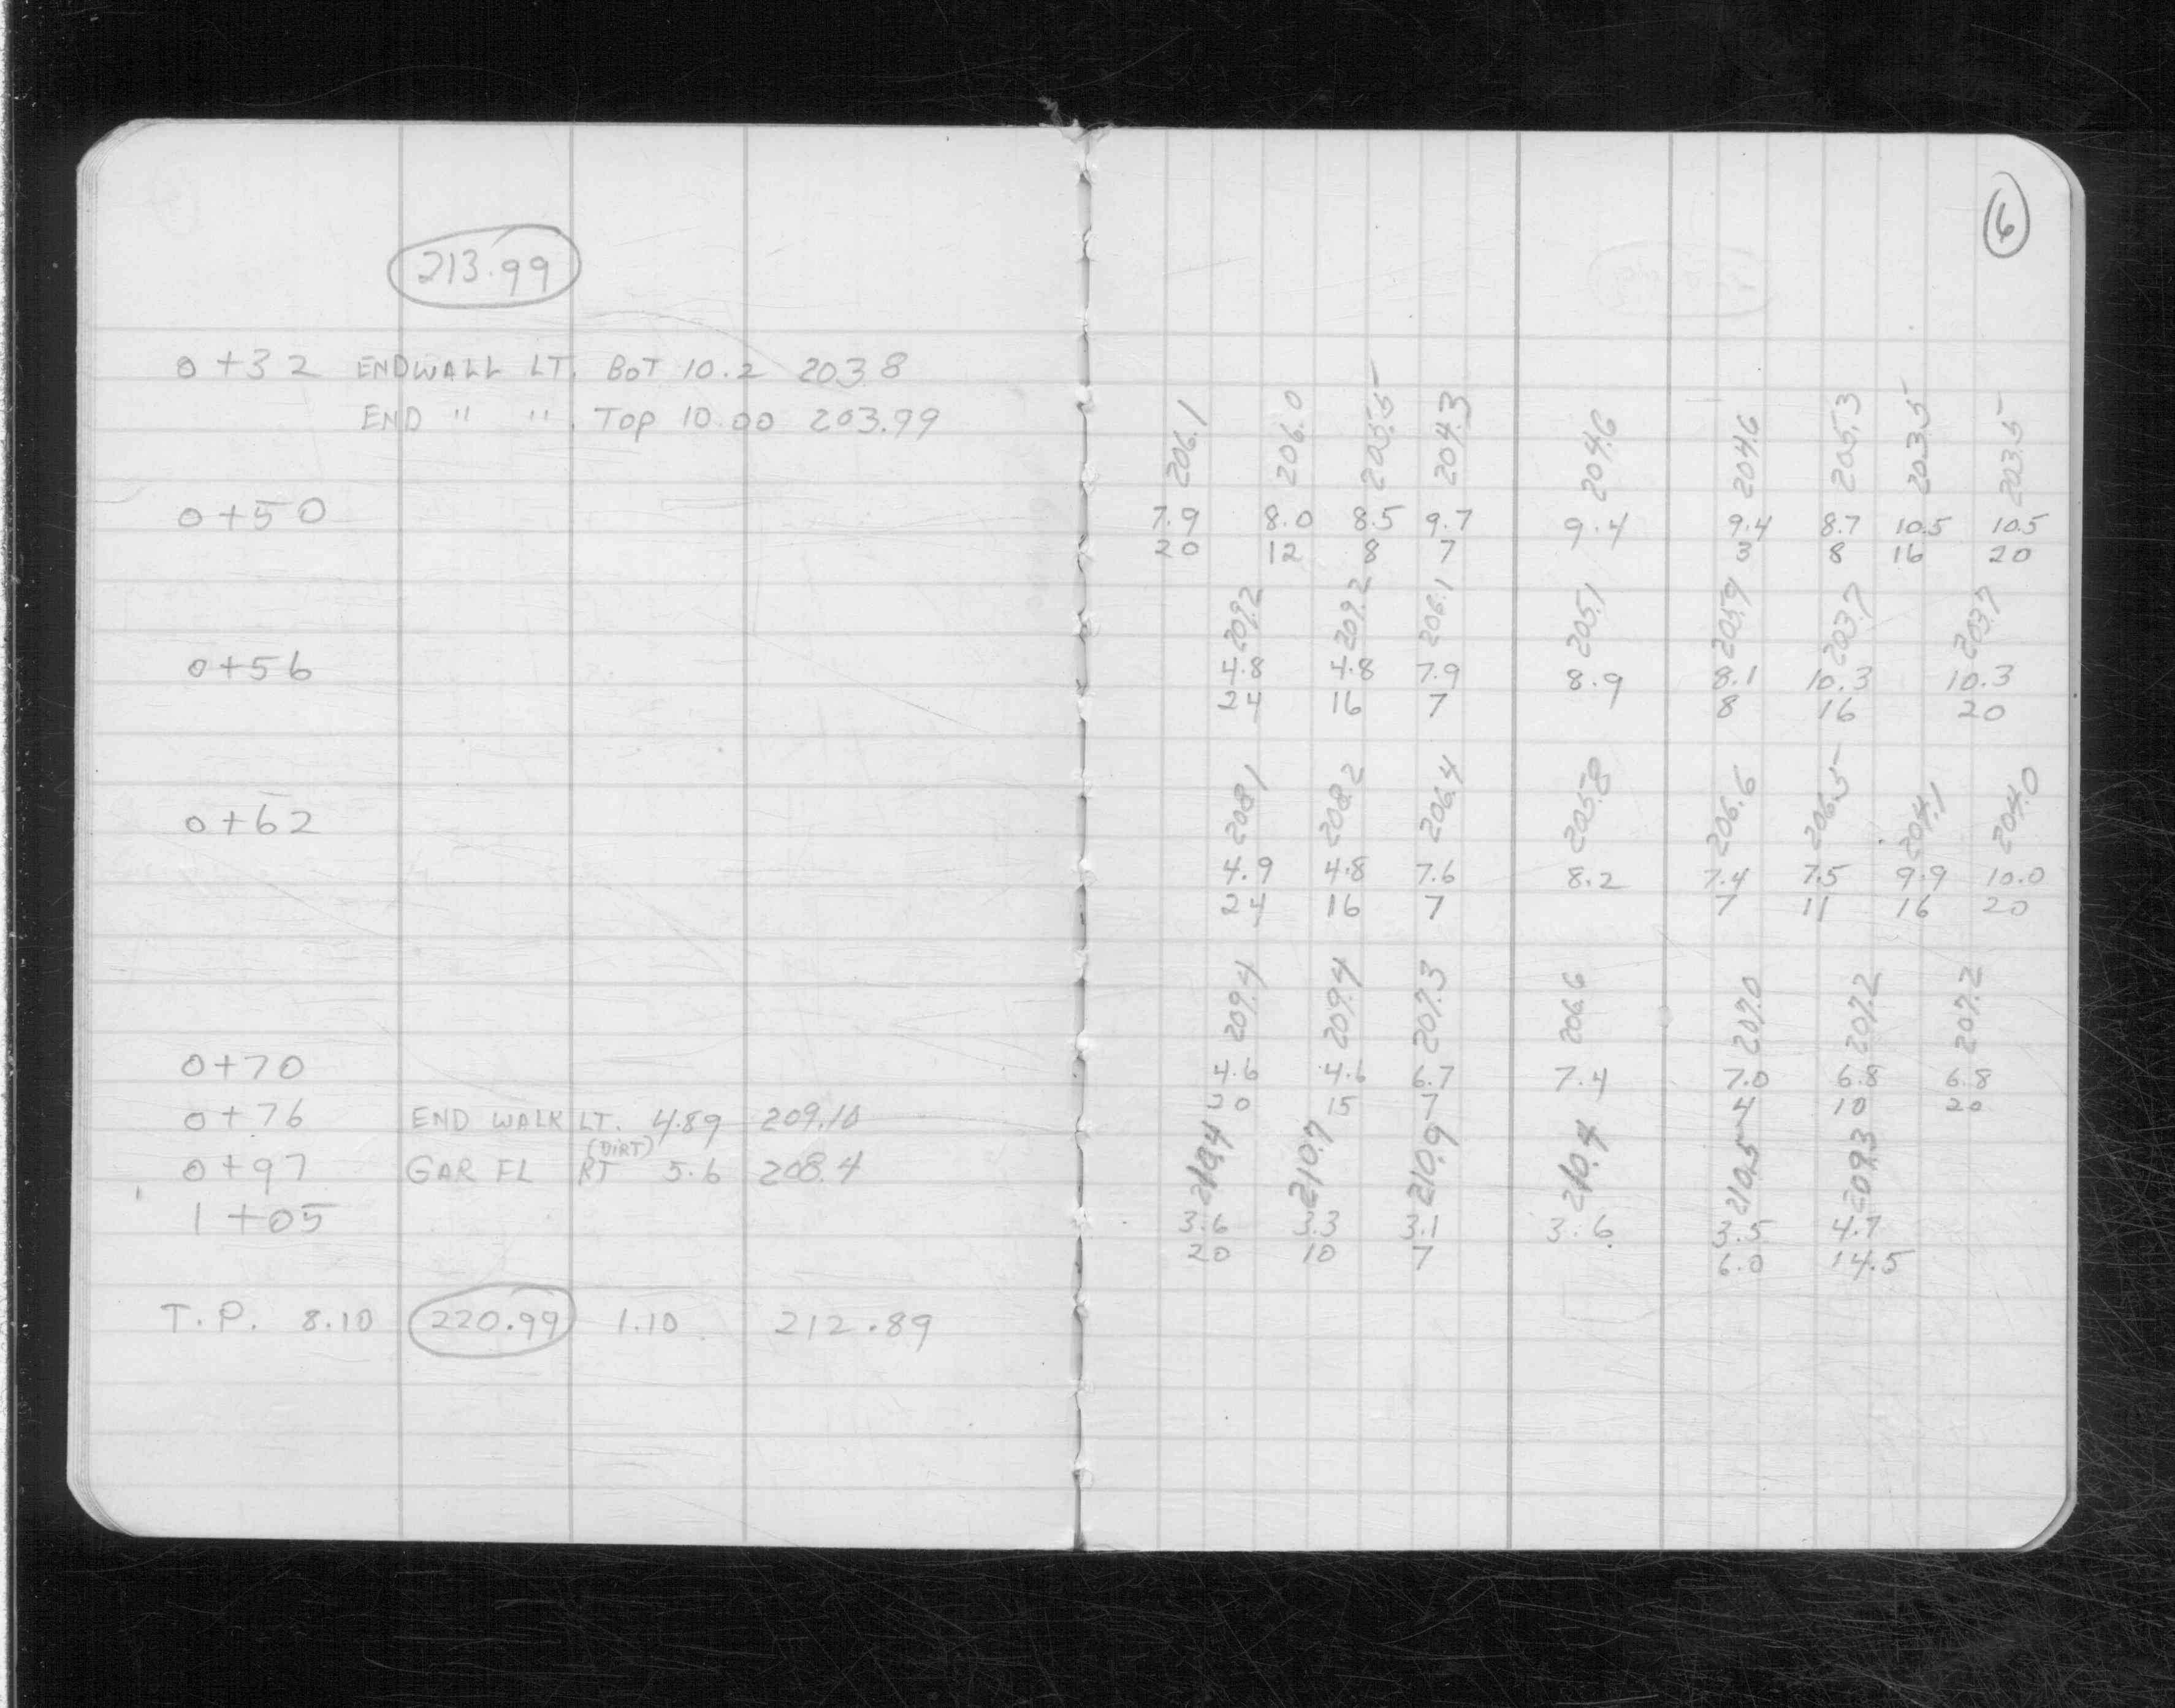 6
213.99
0+32 ENDWALL LT. BOT 10.2 203.8
END " " . TOP 10.00 203.99
206.1 206.0 205.5 204.3 204.6 204.6 205.3 203.5 203.5
0+50 7.9 8.0 8.5 9.7 9.4 9.4 8.7 10.5 10.5
20 12 8 7 3 8 16 20
209.2 209.2 206.1 205.1 205.9 203.7 203.7
0+56 4.8 4.8 7.9 8.9 8.1 10.3 10.3
24 16 7 8 16 20
208.1 208.2 206.4 205.8 206.6 206.5 204.1 204.0
0+62
4.9 4.8 7.6 8.2 7.4 7.5 9.9 10.0
24 16 7 7 11 16 20
209.4 209.4 207.3 206.6 207.0 207.2 207.2
0+70 4.6 4.6 6.7 7.4 7.0 6.8 6.8
20 15 7 4 10 20
0+76 END WALK LT. 4.89 209.10
(DIRT)
0+97 GAR FL RT 5.6 208.4
210.4 210.7 210.9 210.4 210.5 209.3
1+05 3.6 3.3 3.1 3.6 3.5 4.7
20 10 7 6.0 14.5
T.P. 8.10 220.99 1.10 212.89